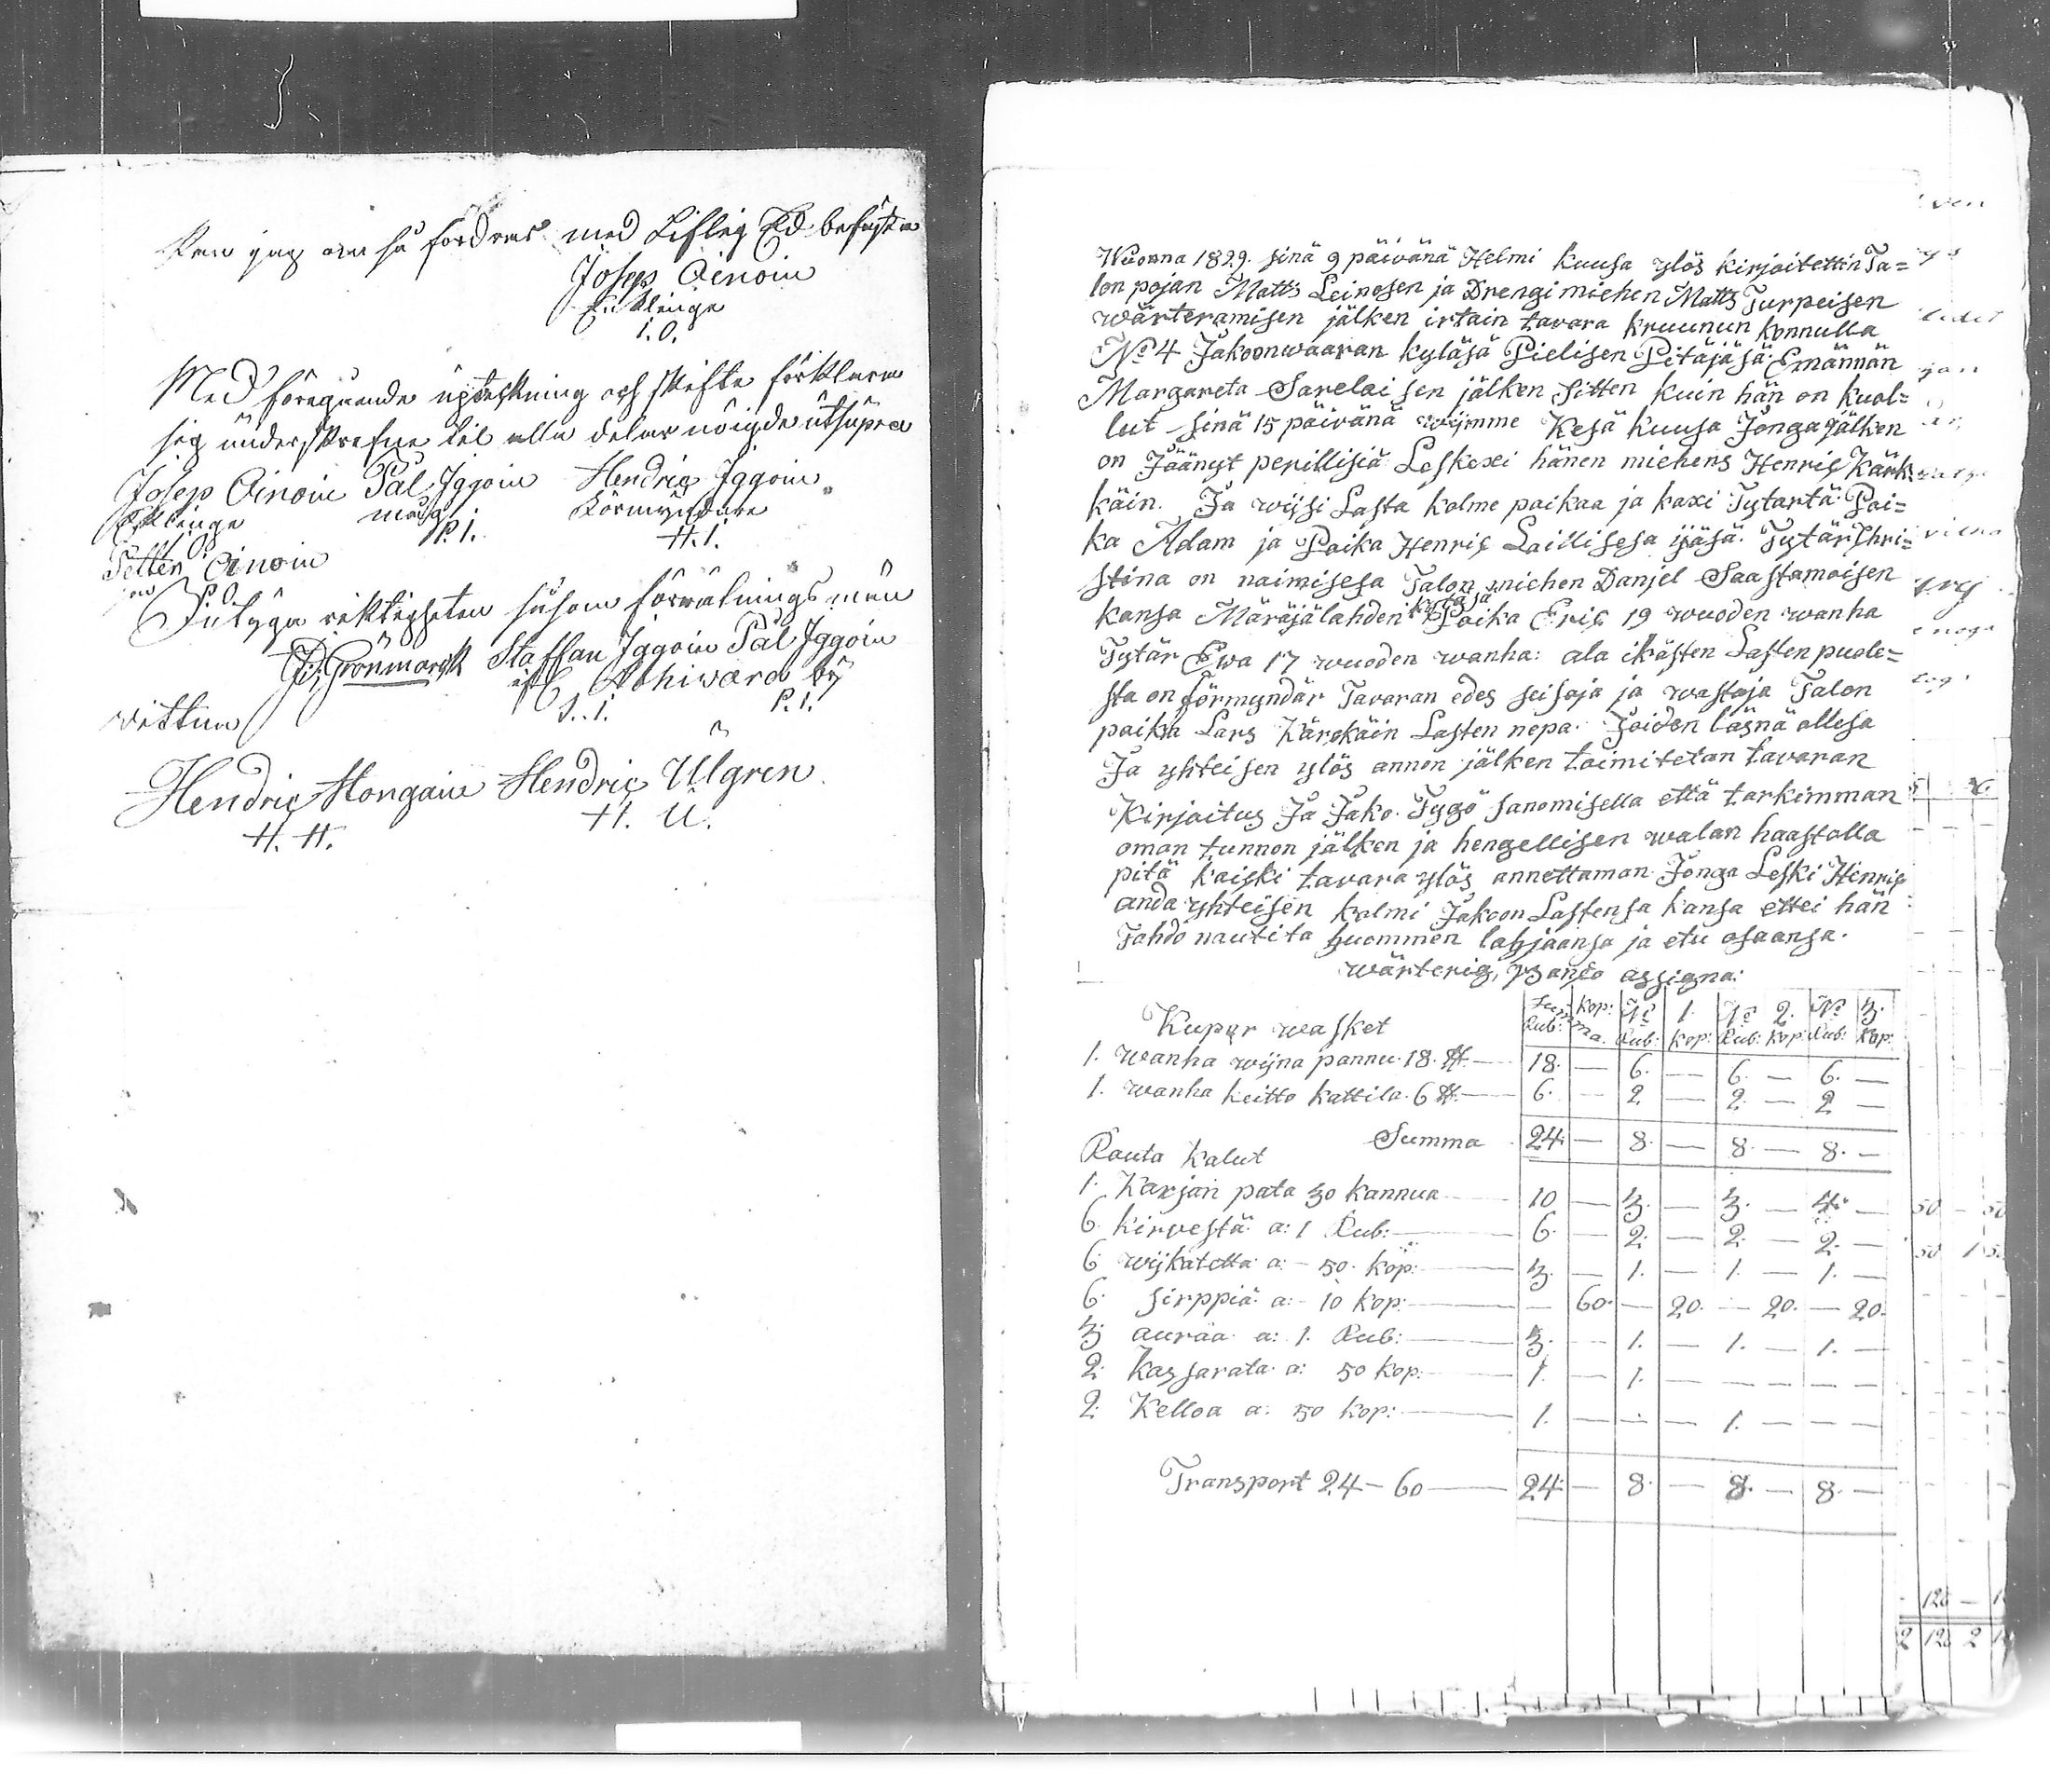 Kan jag om så fordras med Liflig Ed befästa
Josep Oinoin
Enklinge
I.O.
Med föregående upteckning och skifte förklara
sig underskrefne til alla delar nöigde ut supra
Josep Oinoin Pål Iggoin Hendric Iggoin
Enklinge måg Förmyndare
I O P.I. H.I.
Petter Oinoin
P O
Betyga riktigheten såsom förrätnings män
Grönmarck Staffan Iggoin Pål Iggoin
Ahiwara by
S.I. P.I.
vittna
Hendric Hongain Hendric Ulgren
H.H. H.U.
Wuonna 1829. sinä 9 päivänä Helmi kuusa ylös kirjoitettin Ta=
lon pojan Matts Leinosen ja Drengi miehen Matts Turpeisen
wärteramisen jälken irtain tavara kruunun konnulla
No 4 Jakoonwaaran kyläsä Pielisen Pitäjäsä: Emännän
Margareta Sarelaisen jälken Sitten kuin hän on kuol=
lut sinä 15 päivänä wijmme Kesä kuusa Jonga jälken
on Jäänyt perillisiä Leskexi hänen miehens Henric Kärk
käin. Ja wijsi Lasta kolme poikaa ja kaxi Tytartä: Poi=
ka Adam ja Poika Henric Laillisesa ijäsä. Tytär Chri=
stina on naimisesa Talon miehen Danjel Saastamoisen
kansa Märäjälahden kyläsä Poika Eric 19 wuoden wanha
Tytär Ewa 17 wuoden wanha: ala ikästen Lasten puole=
sta on förmyndär Tavaran edes seisoja ja wastaja Talon
poika Lars Kärckäin Lasten nepa. Joiden läsnä ollesa
Ja yhteisen ylös annon jälken toimitetan tavaran
Kirjoitus Ja Jako. Tygö sanomisella että tarkimman
oman tunnon jälken ja hengellisen walan haastolla
pitä kaicki tavara ylös annettaman Jonga Leski Henric
anda yhteisen kolmi Jakoon Lastensa kansa ettei hän
Tahdo nautita huommen lahjaansa ja etu osaansa.
wärterig, Banco assigna:
Kupar wasket Summa Rub: Kop: No 1. Rub: Kop: No 2. Rub: Kop: No 3. Rub: Kop:
1. wanha wijna pannu. 18. ℔ — 18. — 6. — 6. — 6. —
1. wanha keitto kattila. 6 ℔. — 6. — 2 — 2. — 2 —
Summa 24. — 8. — 8. — 8. —
Rauta kalut
1. Karjan pata 30 kannua — 10 — 3. — 3. — 4. —
6. kirvestä a: 1 Rub: — 6. — 2. — 2. — 2. —
6 wijkatetta a: — 50. kop: — 3. — 1. — 1. — 1. —
6. sirppiä a: — 10 kop: — — 60. — 20. — 20. — 20.
3 auraa a: 1. Rub: — 3. — 1. — 1. — 1. —
2. kassarata a: 50 kop: — 1. — 1. — — — — —
2. Kelloa a: 50 kop: — 1. — — — 1. — — —
Transport 24 — 60 — 24 — 8. — 8. — 8. —